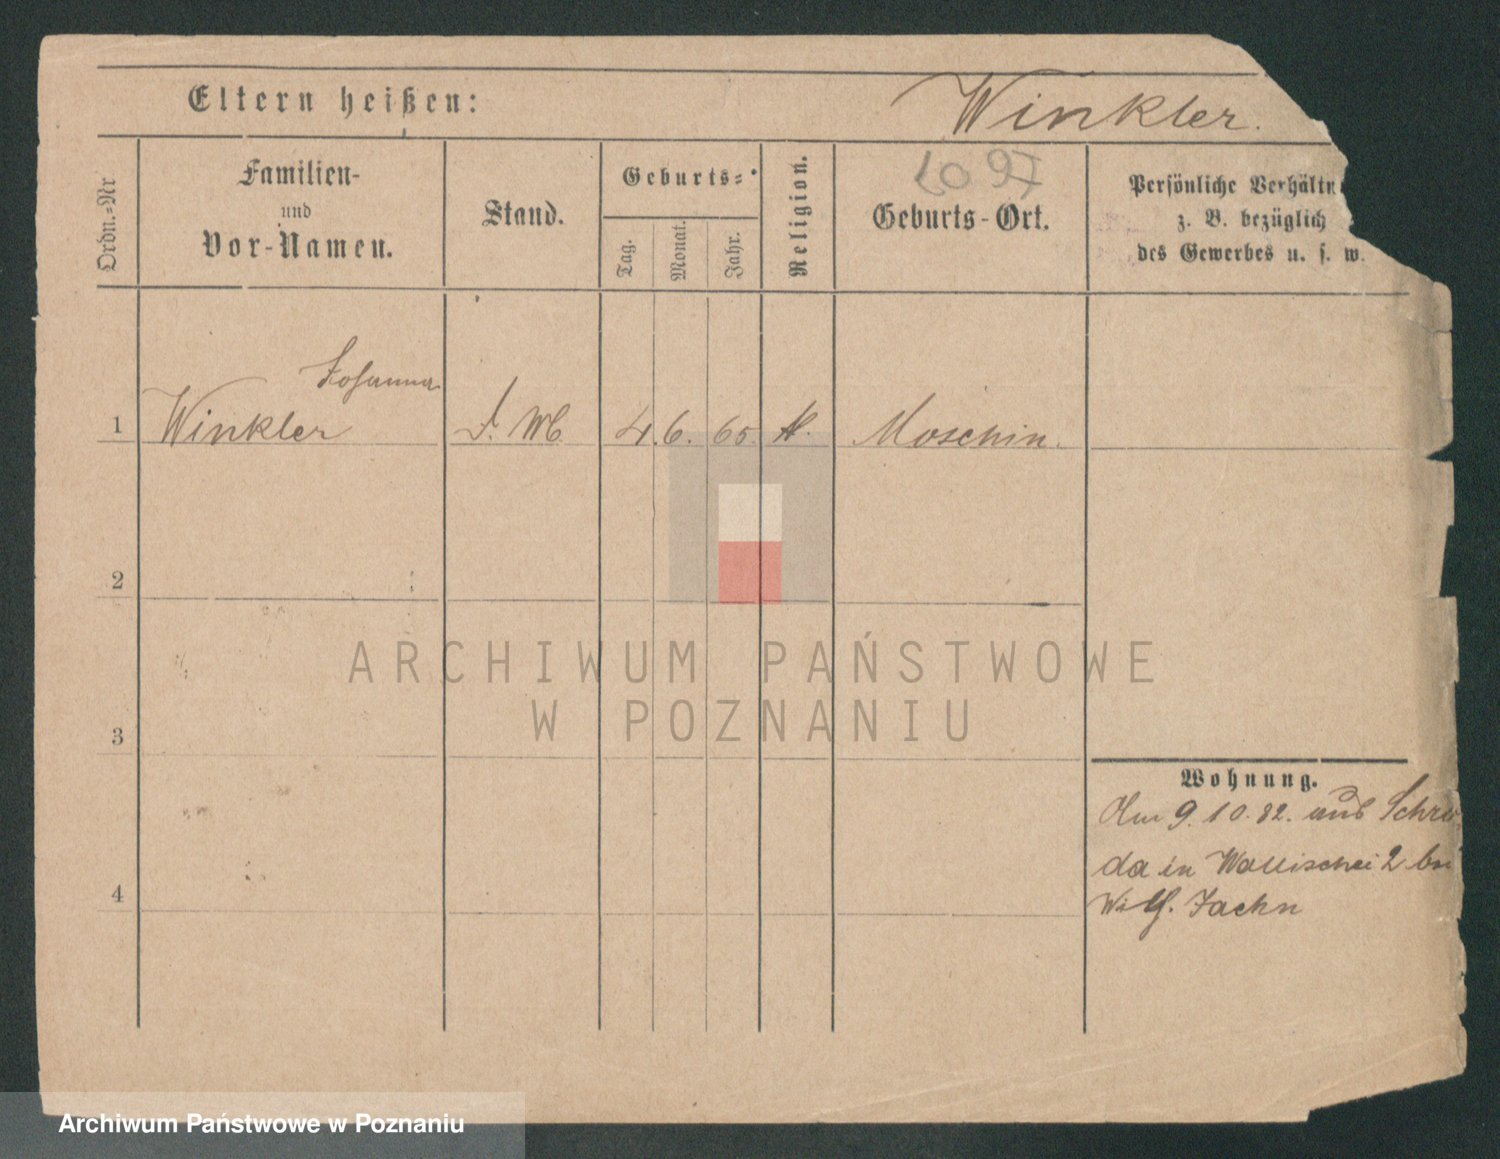 Eltern heißen:
Winkler.
10 97
Ordn.-Nr
Familien-
und
Vor-Namen.
Stand.
Geburts-
Tag.
Monat.
Jahr.
Religion.
Geburts-Ort.
Persönliche Verhältn
z. B. bezüglich
des Gewerbes u. s. w.
Johanna
1 Winkler 4. 6. 65. K. Moschin.
2
3
4
Wohnung.
Am 9.10.82. aus Schro
da in Wallischei 2 bei
Jachn
ARCHIWUM PAŃSTWOWE
W POZNANIU
Archiwum Państwowe w Poznaniu